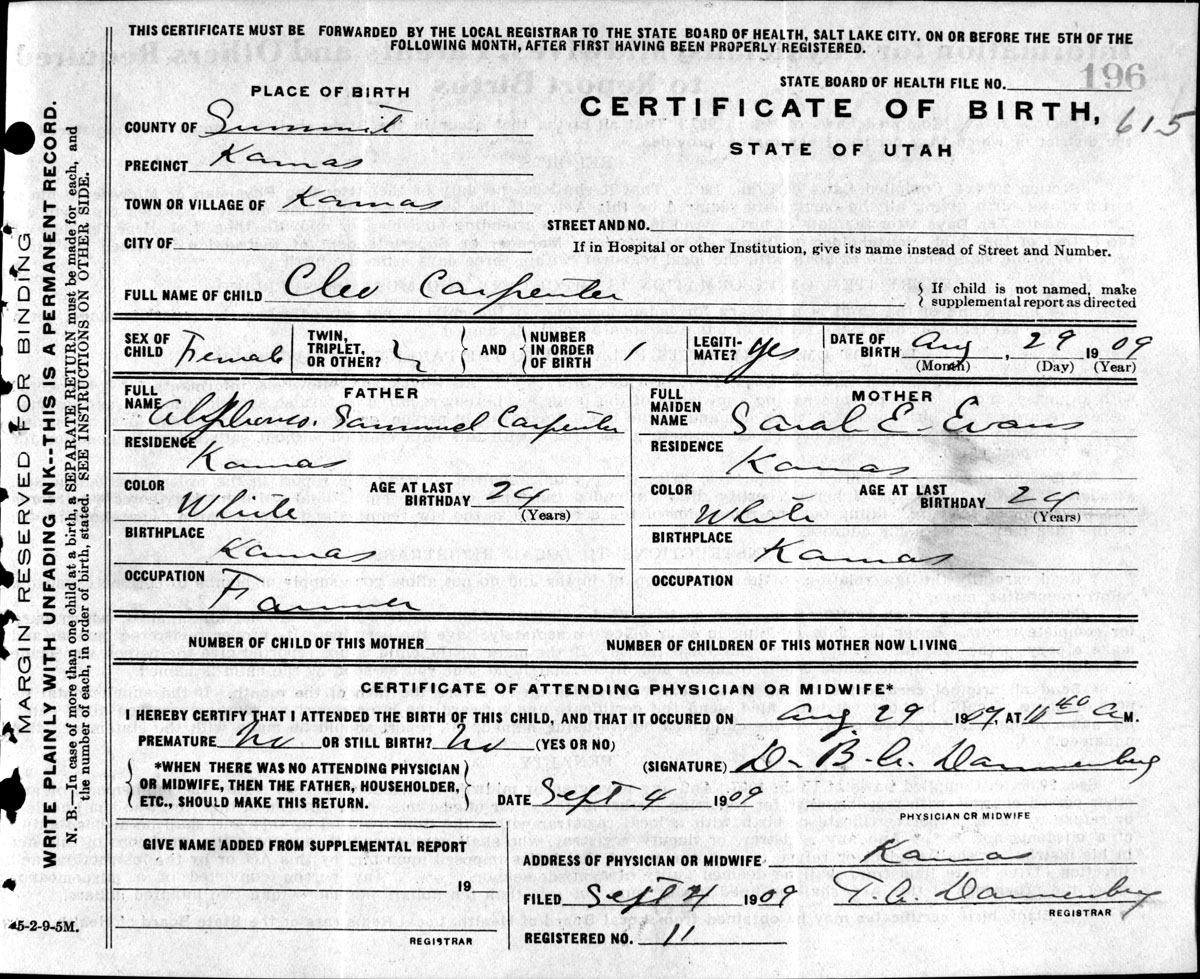 THIS CERTIFICATE MUST BE FORWARDED BY THE LOCAL REGISTRAR TO THE STATE BOARD OF HEALTH, SALT LAKE CITY. ON OR BEFORE THE 5TH OF THE
FOLLOWING MONTH, AFTER FIRST HAVING BEEN PROPERLY REGISTERED.
STATE BOARD OF HEALTH FILE NO. 196
PLACE OF BIRTH
CERTIFICATE OF BIRTH, 615
COUNTY OF Summit
STATE OF UTAH
PRECINCT Kamas
TOWN OR VILLAGE OF Kamas
STREET AND NO.
CITY OF
If in Hospital or other Institution, give its name instead of Street and Number.
FULL NAME OF CHILD Cleo Carpenter
If child is not named, make
supplemental report as directed
SEX OF CHILD Female
TWIN, TRIPLET, OR OTHER?
AND NUMBER IN ORDER OF BIRTH 1
LEGITI-MATE? Yes
DATE OF BIRTH Aug, 29 1909
(Month) (Day) (Year)
FATHER
FULL NAME Alphonso. Sammuel Carpenter
RESIDENCE Kamas
COLOR White
AGE AT LAST BIRTHDAY 24
(Years)
BIRTHPLACE Kamas
OCCUPATION Farmer
MOTHER
FULL MAIDEN NAME Sarah E. Evans
RESIDENCE Kamas
COLOR White
AGE AT LAST BIRTHDAY 24
(Years)
BIRTHPLACE Kamas
OCCUPATION
NUMBER OF CHILD OF THIS MOTHER
NUMBER OF CHILDREN OF THIS MOTHER NOW LIVING
CERTIFICATE OF ATTENDING PHYSICIAN OR MIDWIFE*
I HEREBY CERTIFY THAT I ATTENDED THE BIRTH OF THIS CHILD, AND THAT IT OCCURED ON Aug 29 1909, AT 40 A M.
PREMATURE No OR STILL BIRTH? No (YES OR NO)
*WHEN THERE WAS NO ATTENDING PHYSICIAN
OR MIDWIFE, THEN THE FATHER, HOUSEHOLDER,
ETC., SHOULD MAKE THIS RETURN.
(SIGNATURE) Dannenberg
DATE Sept 4 1909
PHYSICIAN OR MIDWIFE
GIVE NAME ADDED FROM SUPPLEMENTAL REPORT
19
REGISTRAR
ADDRESS OF PHYSICIAN OR MIDWIFE Kamas
FILED Sept 4 1909 Dannenberg
REGISTRAR
REGISTERED NO. 11
45-2-9-5M.
MARGIN RESERVED FOR BINDING
WRITE PLAINLY WITH UNFADING INK--THIS IS A PERMANENT RECORD.
N. B.—In case of more than one child at a birth, a SEPARATE RETURN must be made for each, and
the number of each, in order of birth, stated. SEE INSTRUCTIONS ON OTHER SIDE.